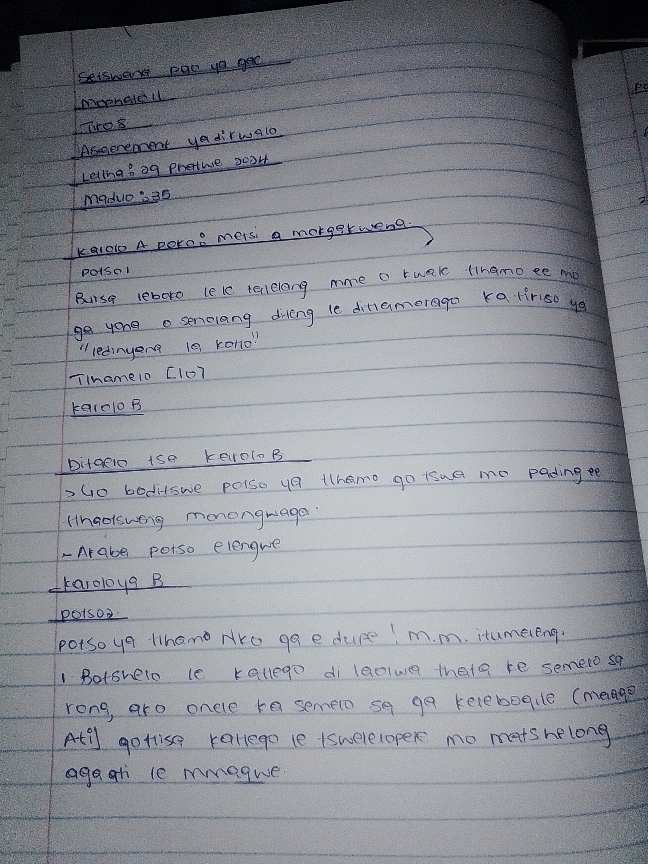 Setswana puo ya gae
Mophato 11
Tiro 8
Assenement ya dikwalo
Letlha: 29 Phatwe 2024
Maduo: 35
Karolo A poko: metsi a matgakwena.
potso 1
Buisa leboko le le tellelang mme o kwale tlhamo ee mo
ga yona o senolang dileng le ditlamorago ka tiriso ya
"ledinyana la kollo"
Tlhamelo [10]
Karolo B
Ditaelo tsa Karolo B
> Go boditswe potso ya tlhamo go tswa mo pading ee
tlhaotsweng monongwaga.
- Araba potso elengwe
Karolo ya B
potso 2.
potso ya tlhamo Nko ga e dupe! M.M. itumeleng.
1 Botshelo le katlego di laolwa thata ke semelo sa
rona, ako onele ka semelo sa ga keleboqile (maago
Ati) gotlisa katlego le tswelelopele mo matshelong
aga ati le mmaqwe.